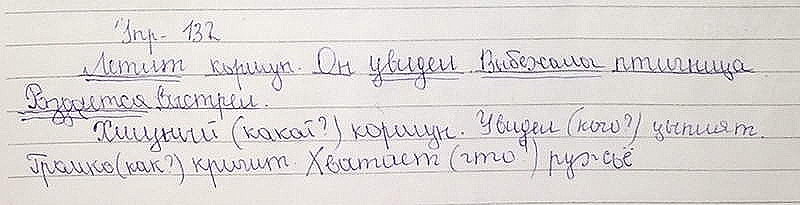 Упр. 132
Летит коршун. Он увидел Выбежала птичница
Раздается выстрел.
Хищный (какой?) коршун. Увидел (кого?) цыплят.
Громко (как?) кричит. Хватает (что?) ружьё